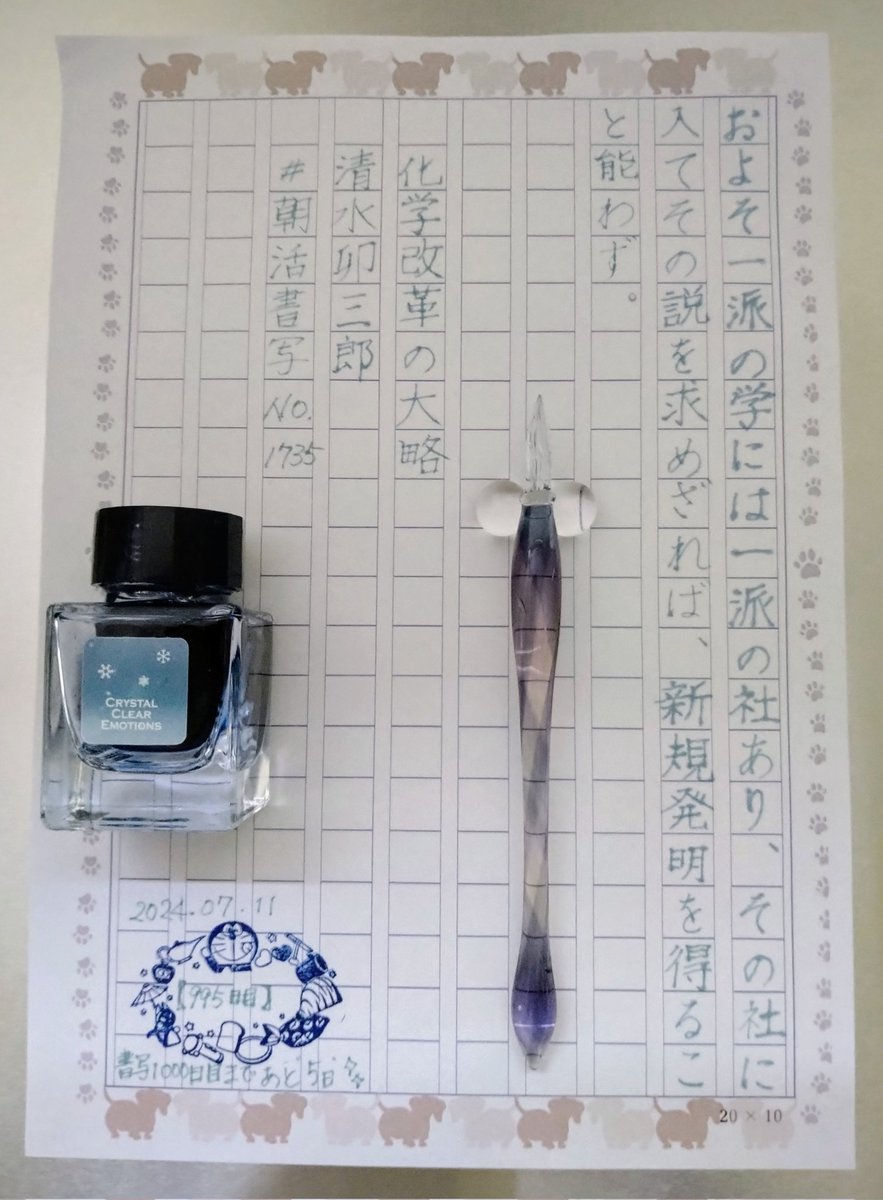 およそ一派の学には一派の社あり、その社に
入てその説を求めざれば、新規発明を得るこ
と能わず。
化学改革の大略
清水卯三郎
#朝活書写NO.1735
CRYSTAL
CLEAR
EMOTIONS
2024.07.11
【995日目】
書写1000日目まであと5日
20×10